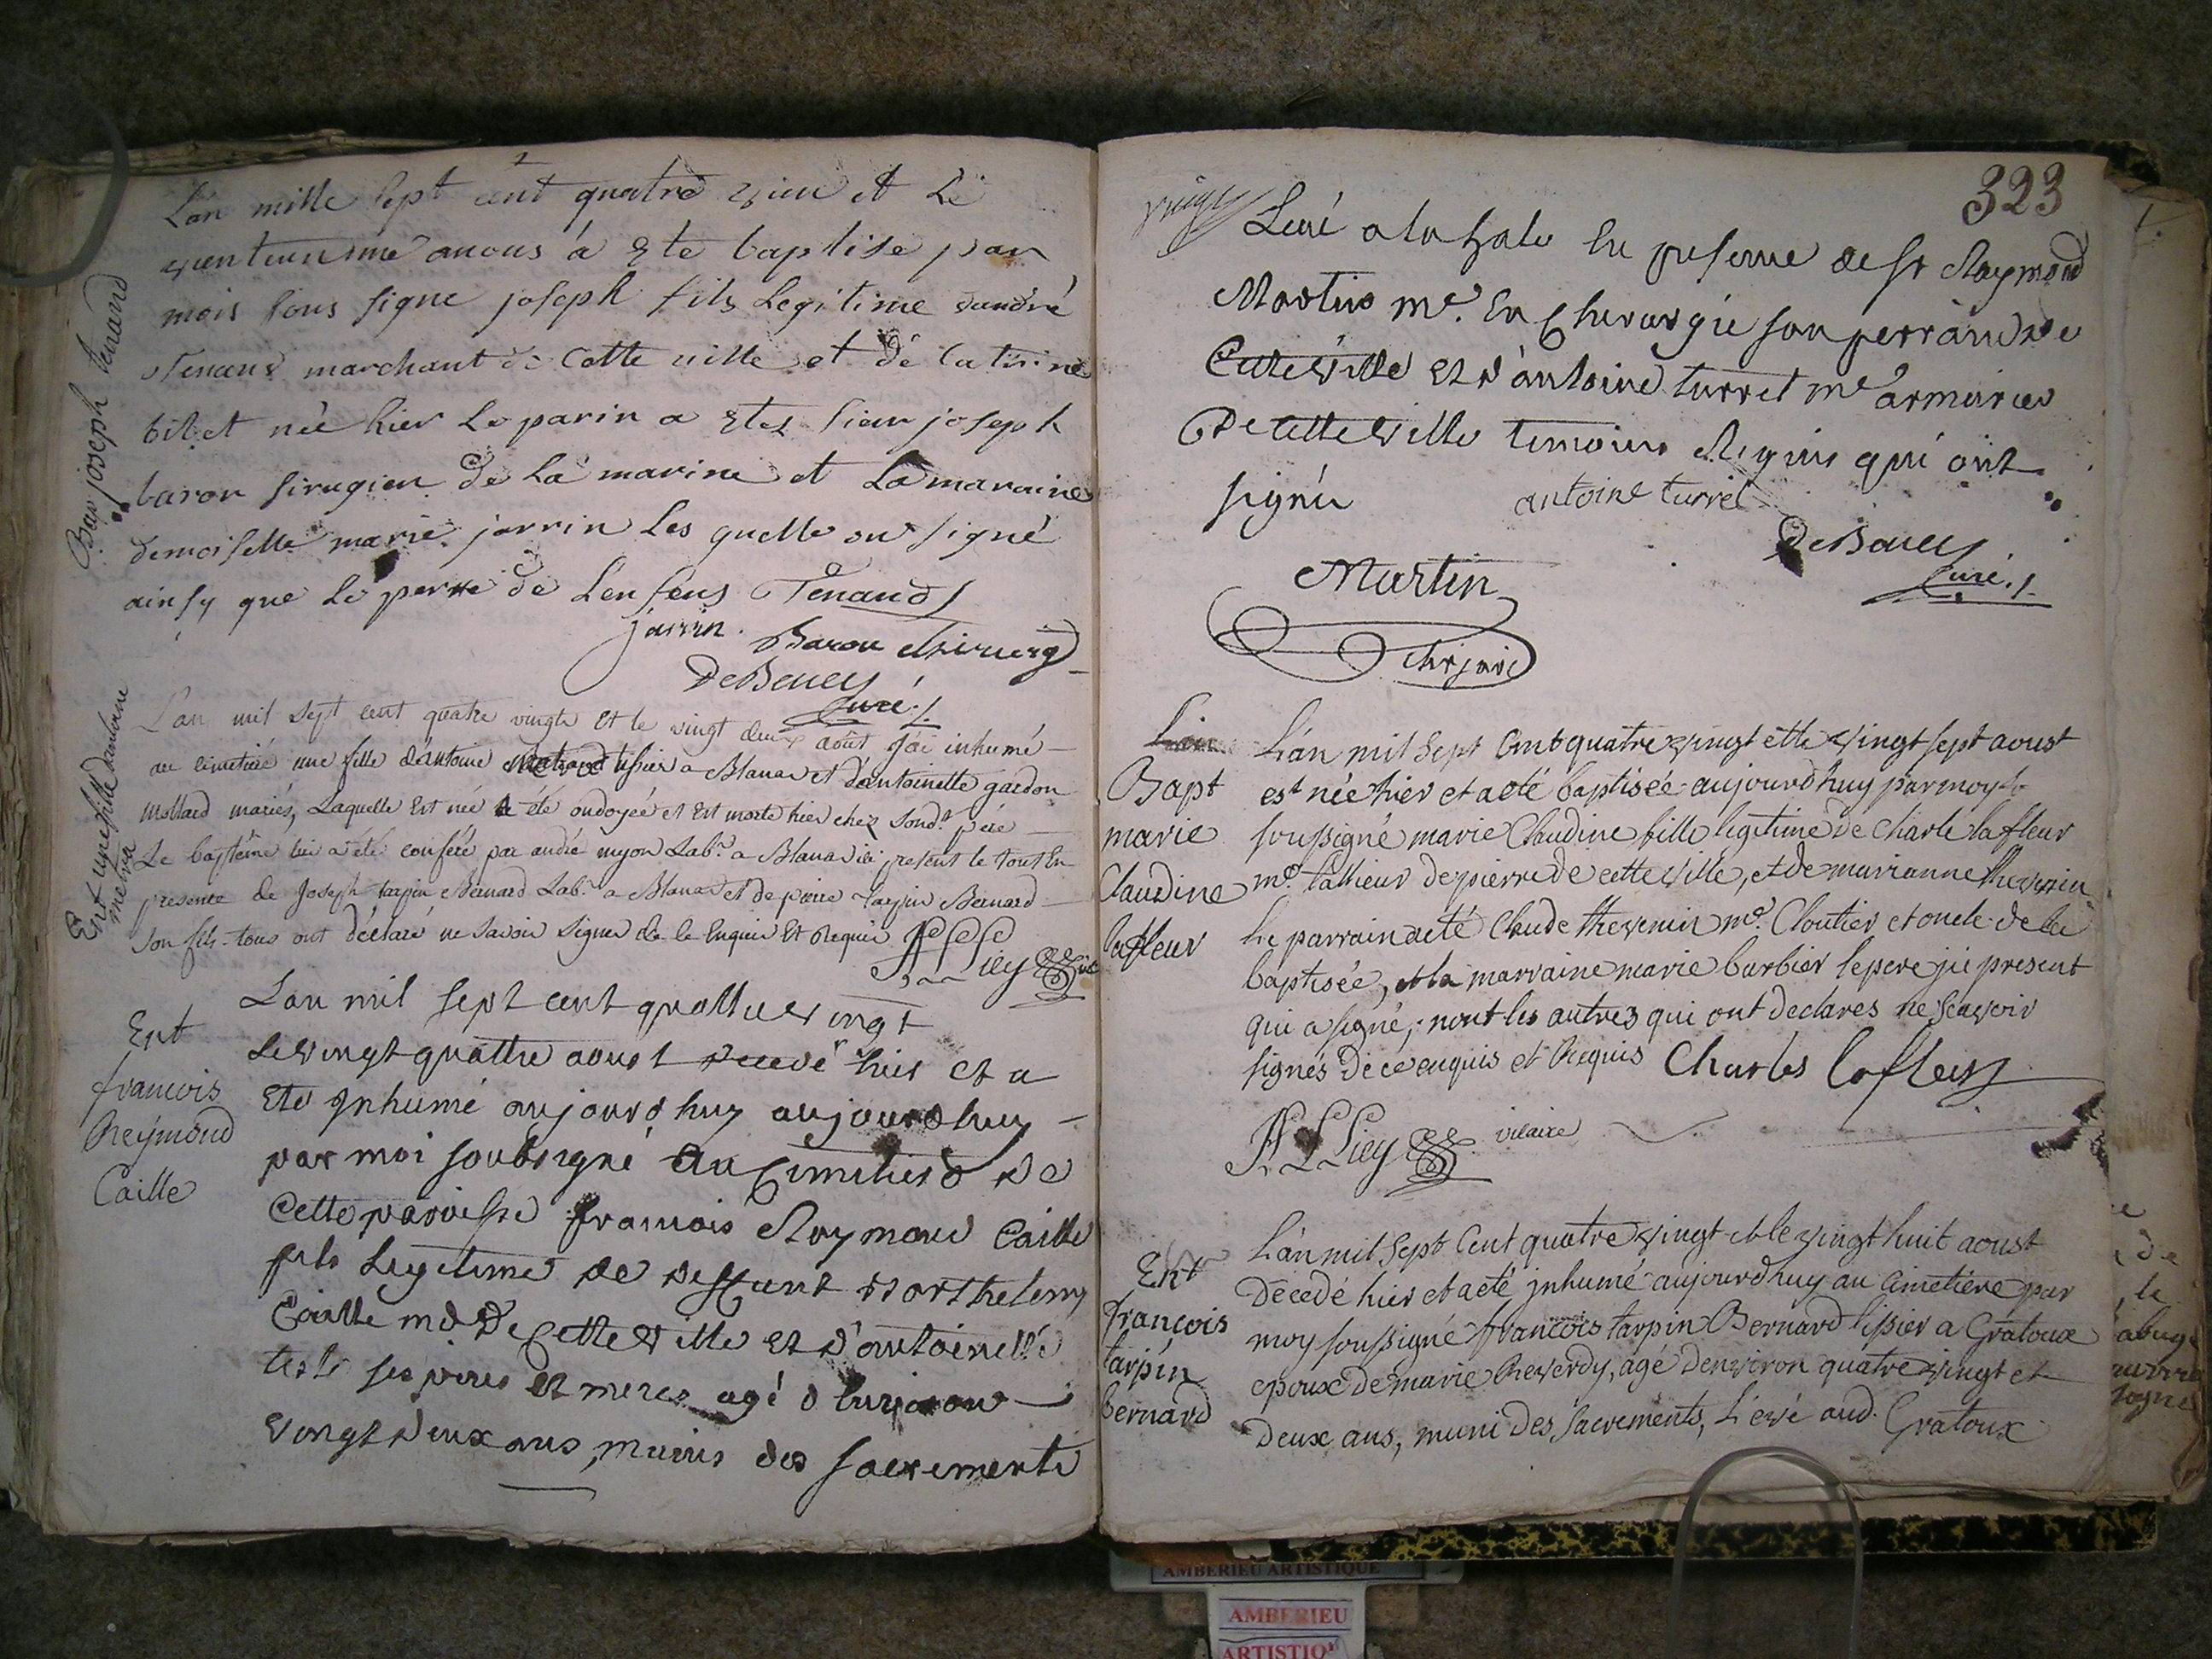 Bap joseph tenand
L'an mille sept cent quatre vien et Le
vienteunsme auous à Ete baptise par
mois sous signe joseph fils Legitime dandré
tenand marchant de Cette uille et dé Catrine
bilet née hier Le parin a Etes sieur joseph
baron sirugien de La marine et La maraine
demoiselle marie jarrin Les quelle on signé
ainsy que Le perre de Lenfens Tenand
jarrin. Baron chirurg
DeBouey
Curé
Ent une fille dantoine
metra
L'an mil sept cent quatre vingts Et le vingt deux août j'ai inhumé
au cimetière une fille d'antoine tisier a Blanas et d'antoinette gardon
Mollard mariés, Laquelle Est née a été ondoyée et Est morte hier chez sond. père
Le baptême lui a été conféré par andré myon Lab.r a Blanas ici présent le tout En
presence de Joseph tarpin Bernard Lab.r a Blanas Et de pierre tarpin Bernard
son fils. tous ont déclaré ne savoir signer de ce Enquis Et Requis
Ent
francois
Reymond
Caille
L'an mil sept cent quattre vingt
Le vingt quattre aoust decedé hier et a
Eté Inhumé aujourdhuy aujourdhuy
par moi soubsigné au Cimetierre de
Cette paroisse francois Raymond Caille
fils Legitime de deffunt Barthelemy
Caille md De Cette ville et d'antoinette
teste ses pères et meres agé d'Environ
vingt deux ans, munis des sacrements
323
vingt
Levé a la hale En presence de sr Raymond
Martin me. En Chirurgie son perrain de
Cette ville et d'antoine turrel me armurier
De cette ville temoins Requis qui ont
signés antoine turrel
DeBouey
Curé
Martin
Chirjuré
Bapt
marie
Claudine
lafleur
L'an mil sept Cent quatre vingt et le vingt sept aoust
est née hier et a eté baptisée aujourd'huy par moy
soussigné marie Claudine fille legitime de Charle lafleur
me. tallieur de pierre de cette ville, et de marianne thevenin
le parrain a eté Claude thevenin me. Cloutier et oncle de la
baptisée, et la marraine marie barbier le pere ici present
qui a signé, nont les autres qui ont declares ne scavoir
signés de ce enquis et Requis Charles lafleur
vicaire
Ent
francois
tarpin
bernard
L'an mil sept Cent quatre vingt et le vingt huit aoust
Decedé hier et a eté jnhumé aujourd'huy au Cimetière par
moy soussigné francois tarpin Bernard tissier a Gratoux
epoux de marie Reverdy, agé d'environ quatre vingt et
deux ans, muni des sacrements, Levé aud. Gratoux
AMBERIEU ARTISTIQUE
AMBERIEU